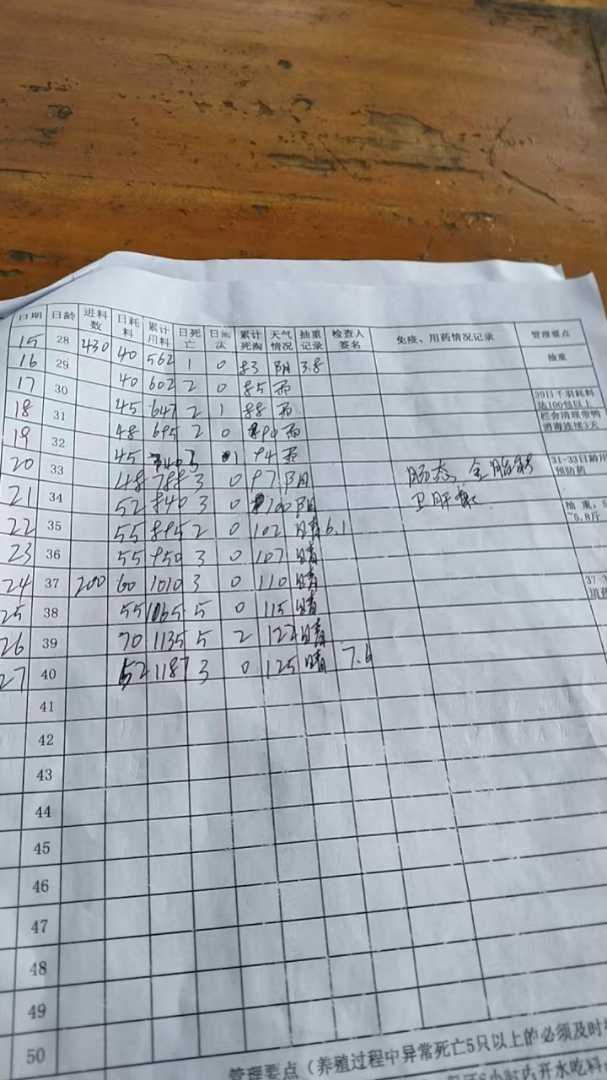 日期 日龄 进料数 日耗料 累计用料 日死亡 日淘汰 累计死淘 天气情况 抽重记录 检查人签名 免疫、用药情况记录 管理要点
15 28 430 40 562 1 0 83 阴 3.8 抽重
16 29 40 602 2 0 85 雨
17 30 45 647 2 1 88 雨 39日千羽耗料达100包以上
18 31 48 695 2 0 90 雨 栏舍清理带鸭消毒连续3天
19 32 45 740 3 1 94 雨
20 33 48 788 3 0 97 阴 肠态 31-33日龄用预防药
21 34 52 840 3 0 100 阴 卫肝
22 35 55 895 2 0 102 晴 6.1 抽重
23 36 55 950 3 0 107 晴
24 37 200 60 1010 3 0 110 晴
25 38 55 1065 5 0 115 晴
26 39 70 1135 5 2 122 晴
27 40 52 1187 3 0 125 晴 7.6
41
42
43
44
45
46
47
48
49
50
管理要点（养殖过程中异常死亡5只以上的必须及时
小时内开水吃料